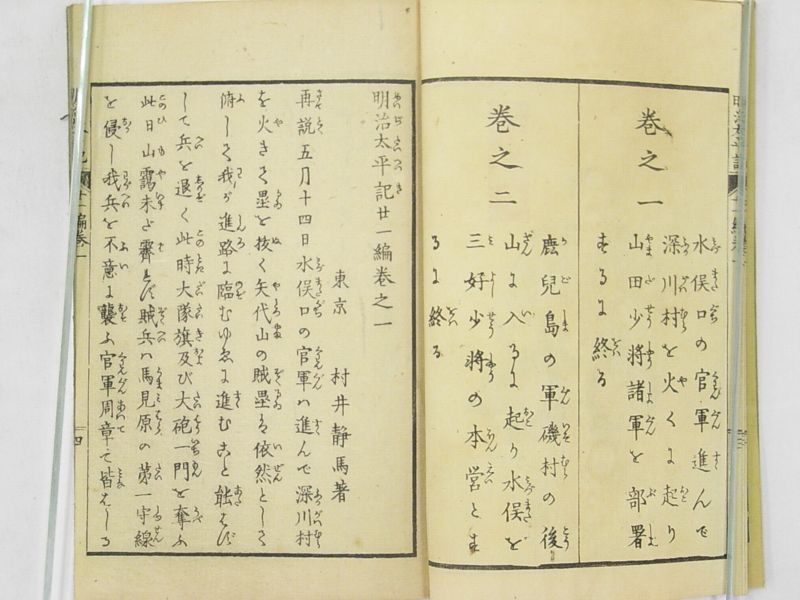 巻之一
水俣口の官軍進んで
深川村を火くに起り
山田少将諸軍を部署
するに終る
巻之二
鹿兒島の軍磯村の後
山に入るに起り水俣を
三好少将の本営とす
るに終る
明治太平記廿一編巻之一
東京 村井静馬著
再説五月十四日水俣口の官軍ハ進んで深川村
を火きて塁を抜く矢代山の賊塁ハ依然として
俯して我が進路に臨むゆゑに進むこと能はず
して兵を退く此時大隊旗及び大砲一門を奪ふ
此日山靄未だ霽れず賊兵ハ馬見原の第一守線
を侵し我兵を不意に襲ふ官軍周章て皆はしる